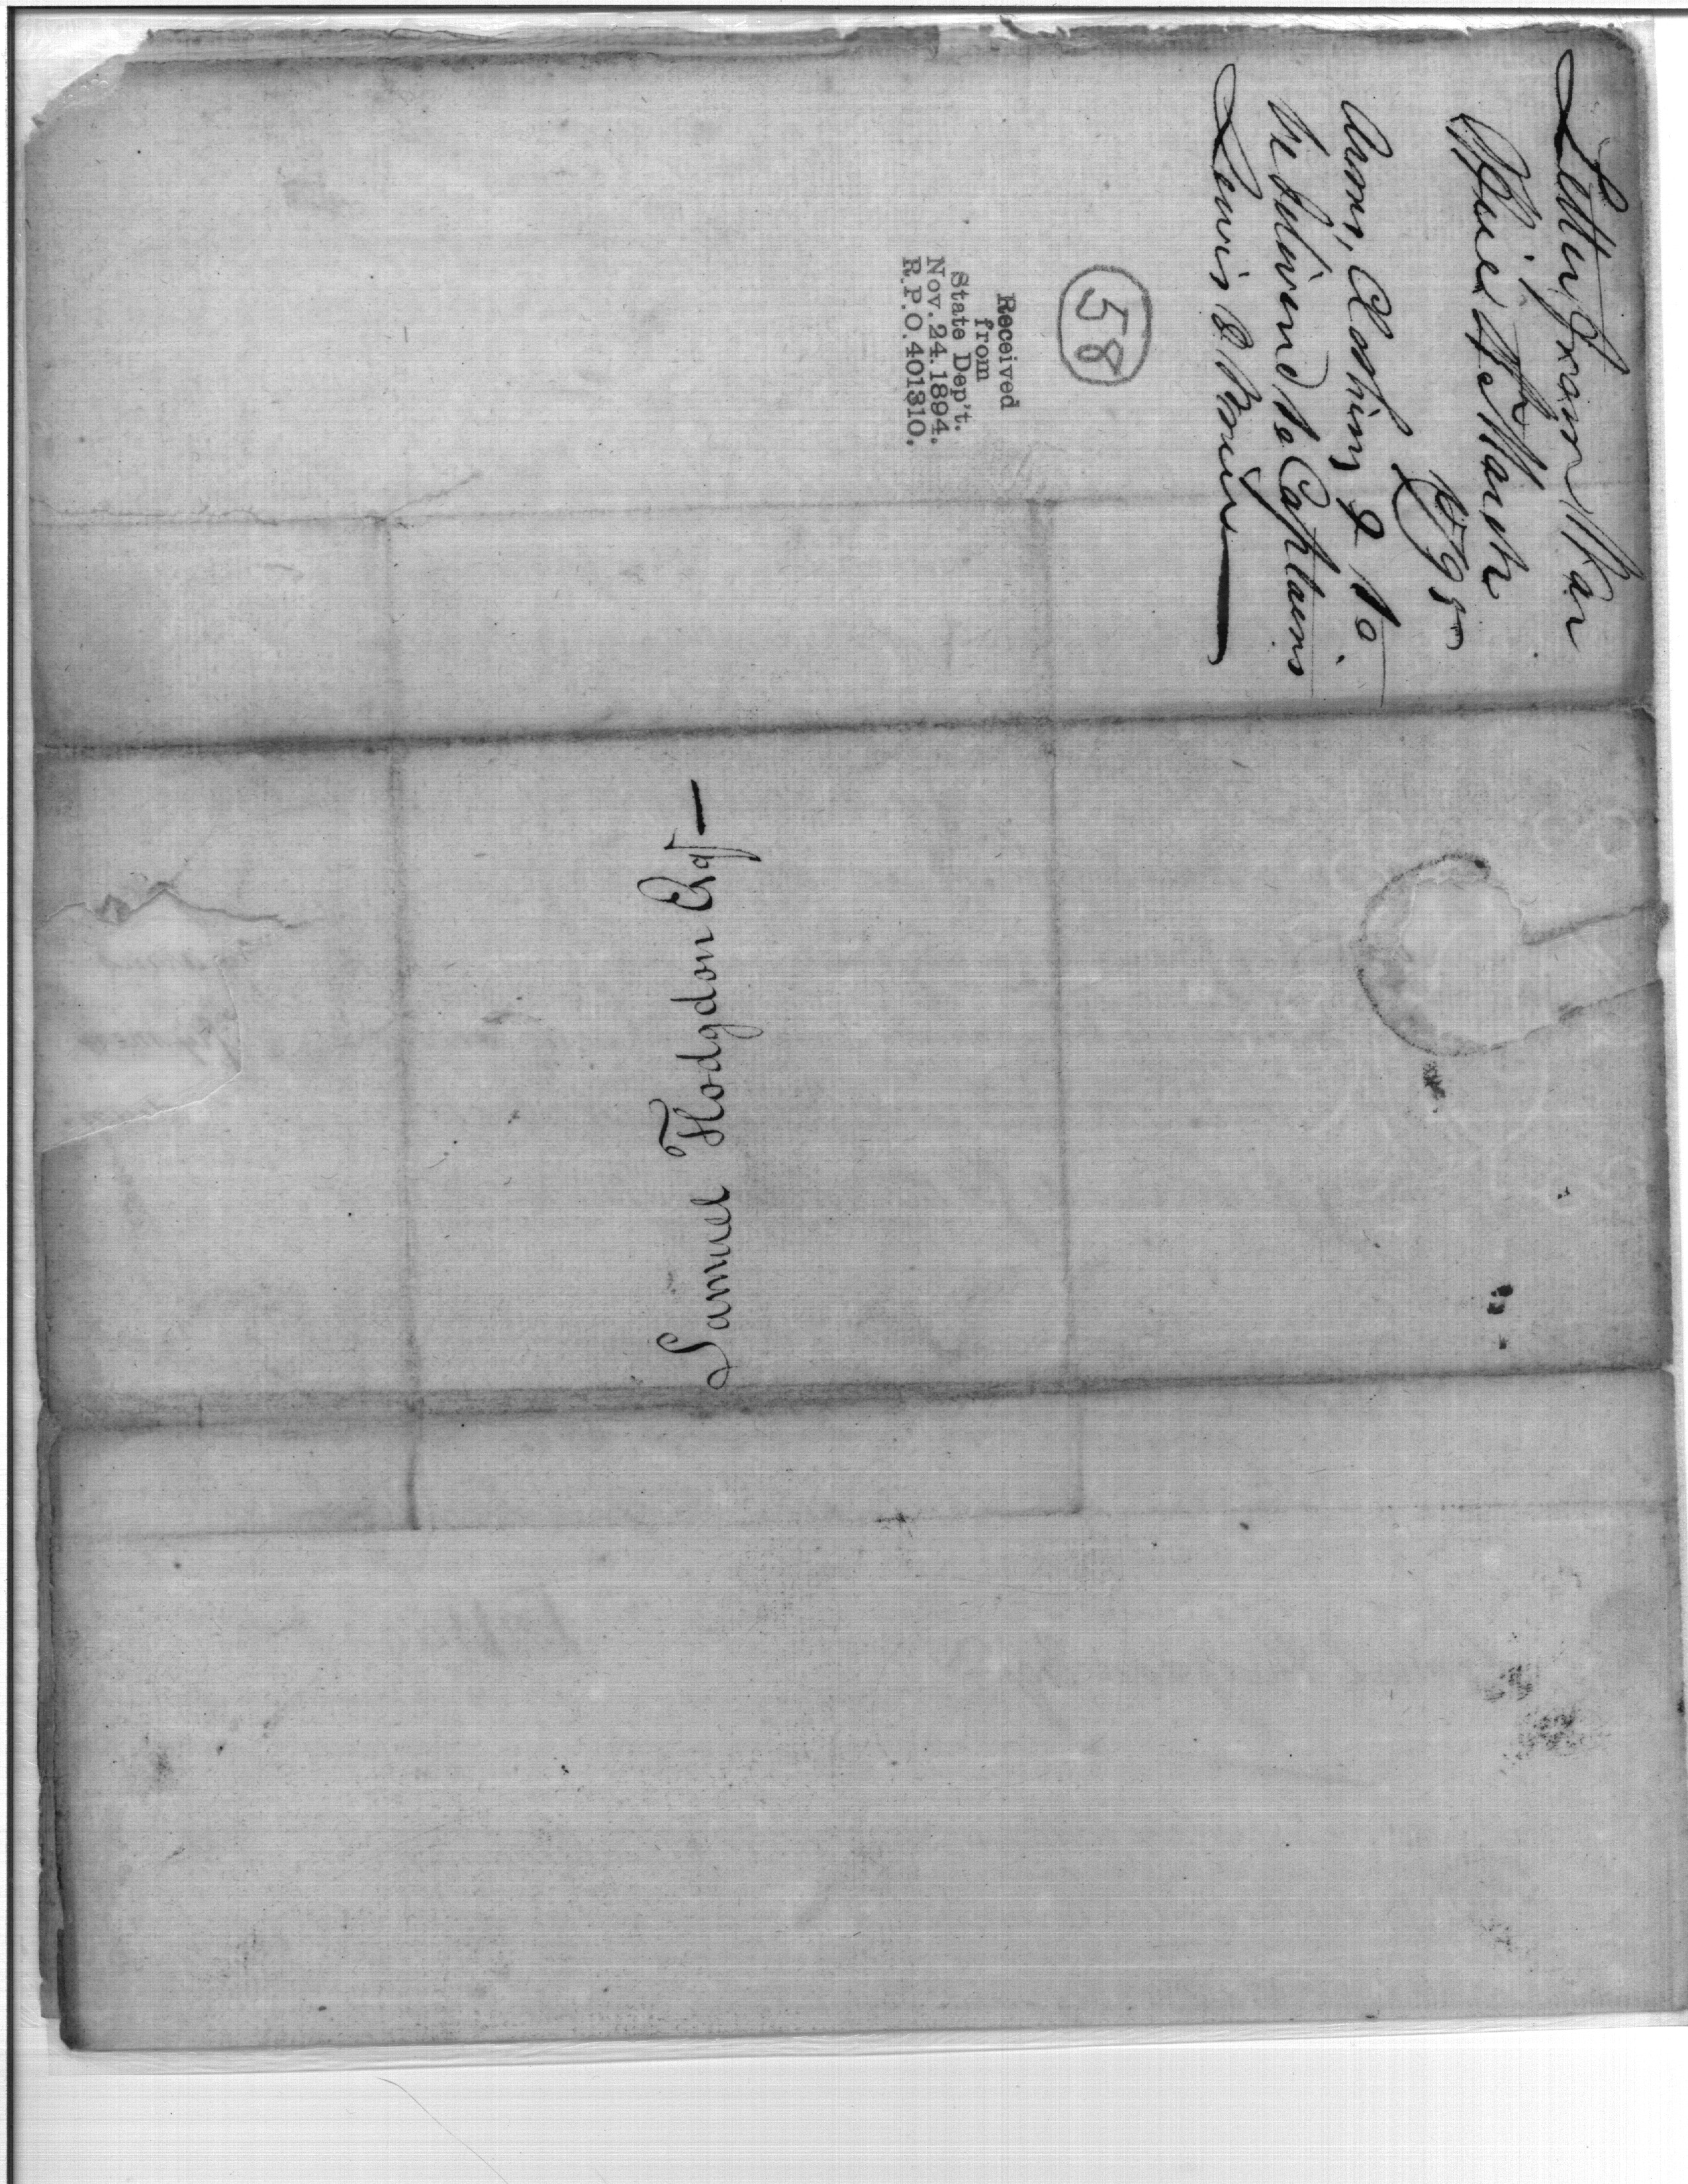 Letter from War
Office 4th March
1795
Arms, Clothing & to
be delivered to Captains
Lewis &
58
Received
from
State Dep't.
Nov. 24. 1894.
R.P.O. 401310.
Samuel Hodgdon Esqr